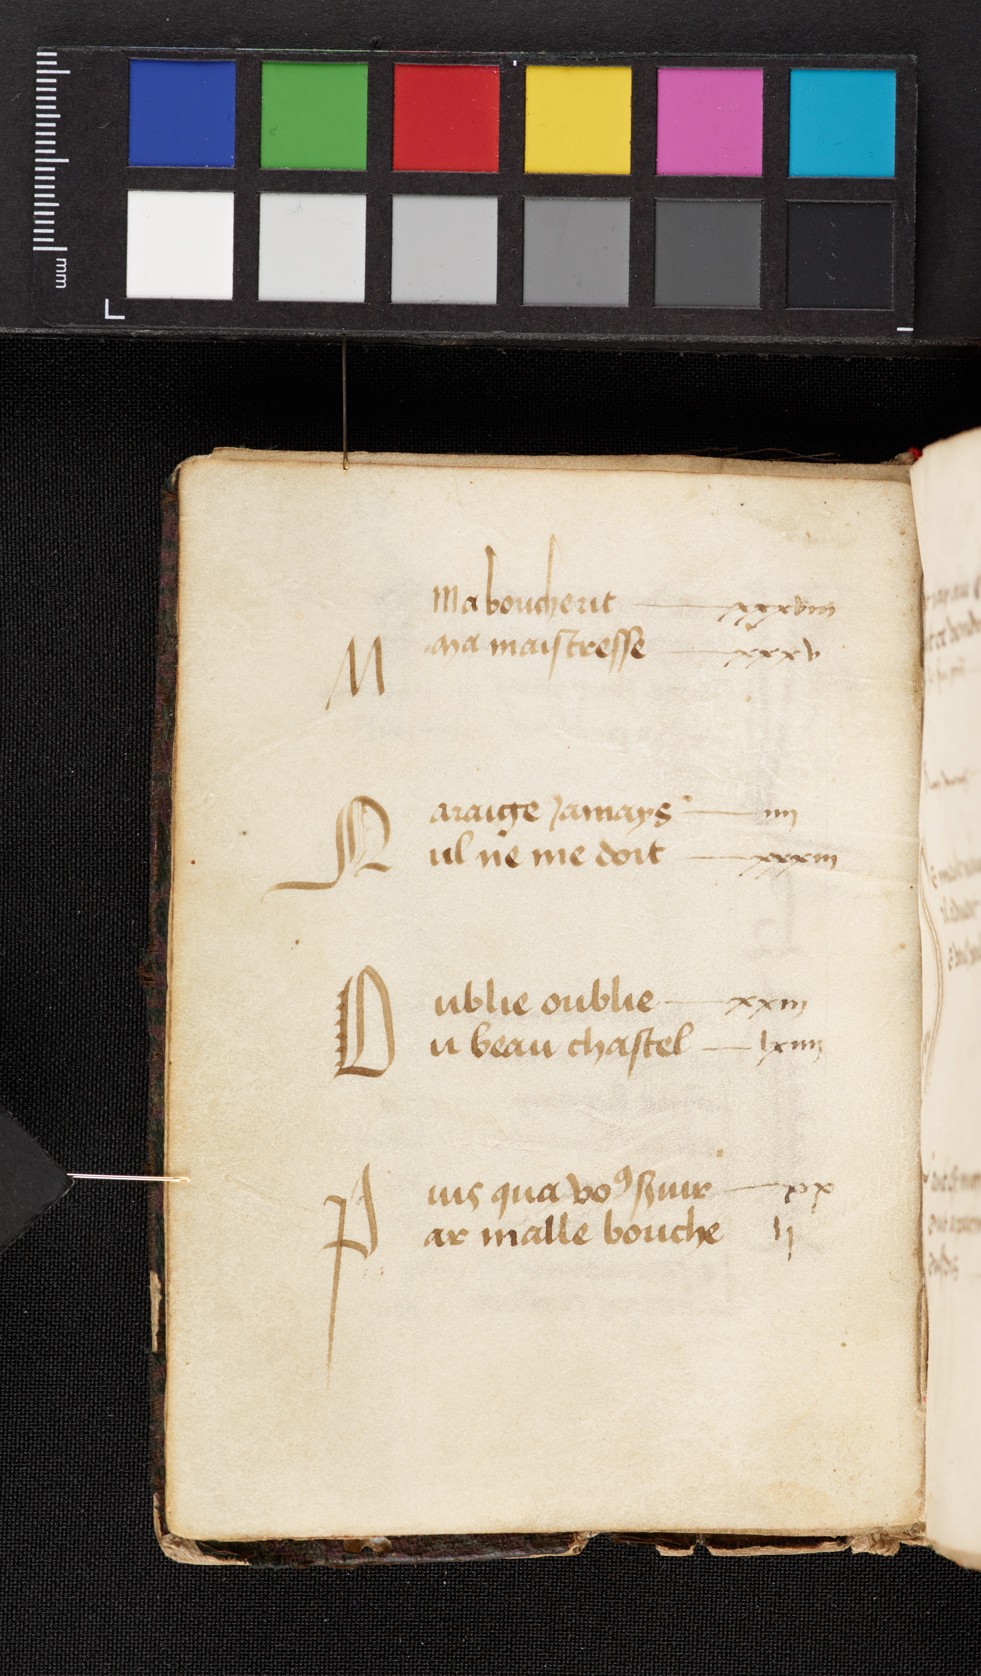 mm
Ma bouche rit xxxviii
M
Ma maistresse xxxv
N
araige Jamays iiii
ul ne me doit xxxiii
O
ublie oublie xxiii
u beau chastel lxiiii
P
uis qua voꝰ xx
ar malle bouche ij